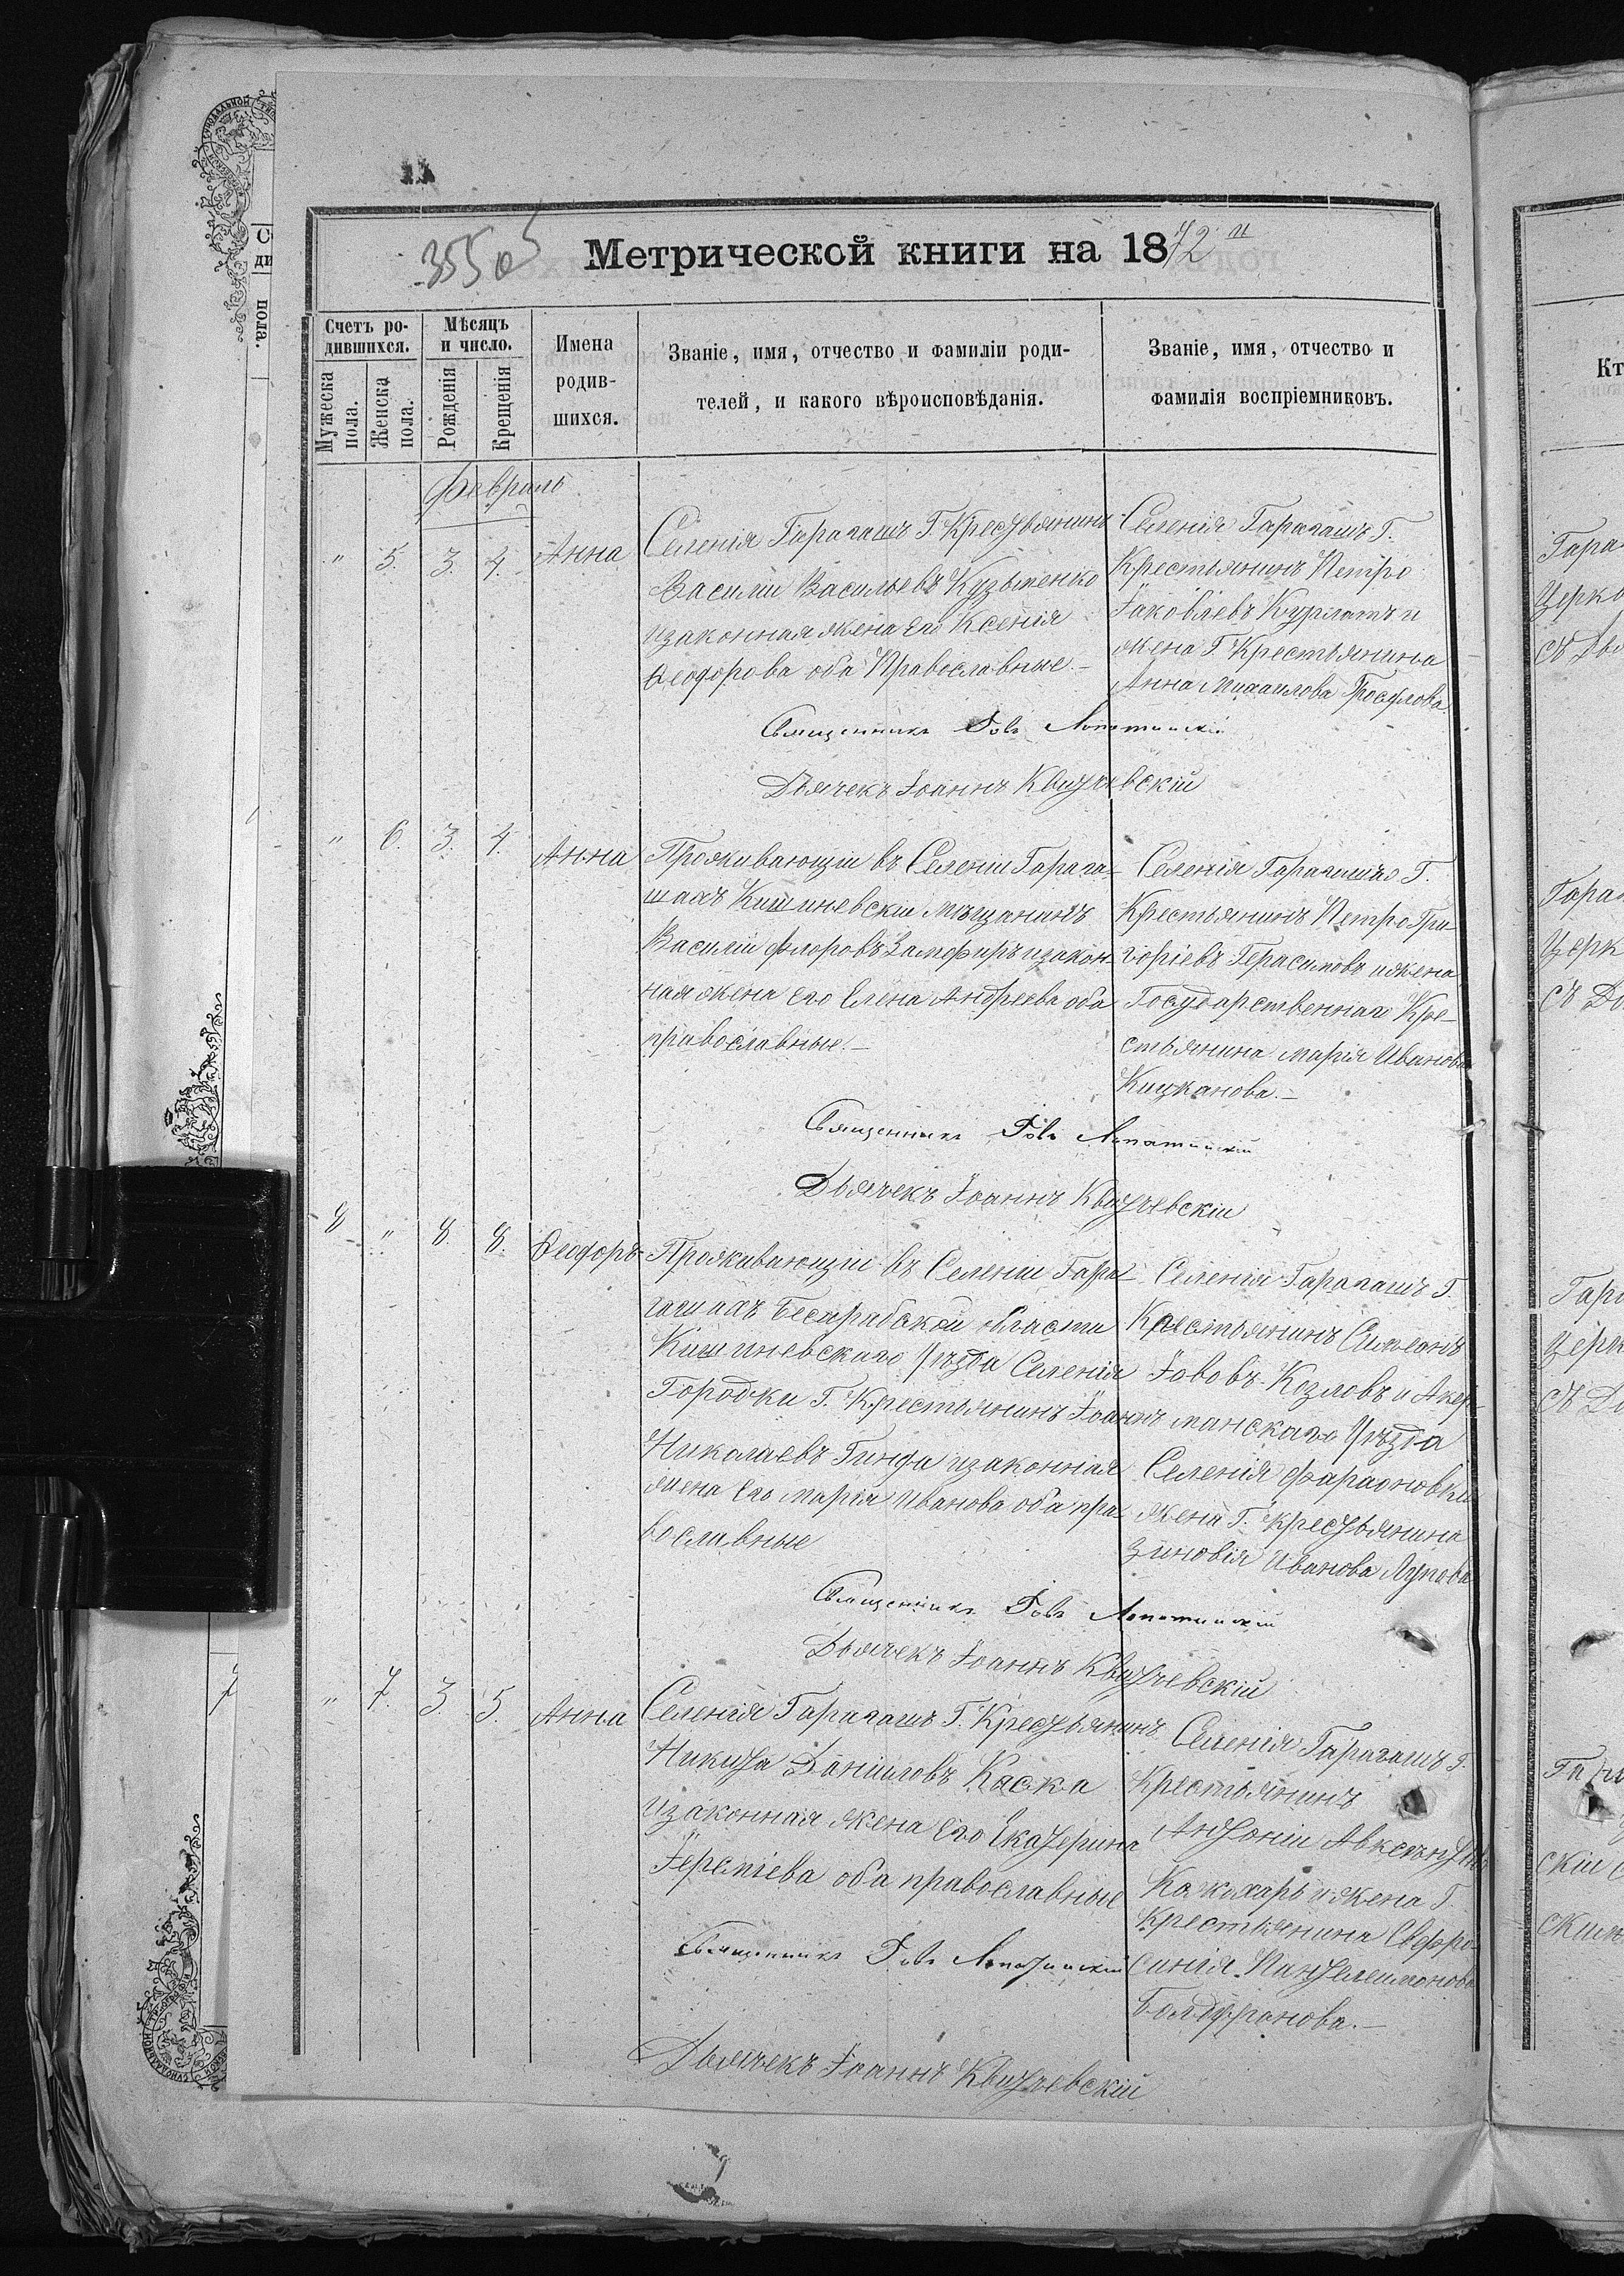 355 об
Метрической книги на 1872й
Счетъ ро-
дившихся.
Мужеска пола.
Женска пола.
Мѣсяцъ
и число.
Рожденія
Крещенія
Имена
родив-
шихся.
Званіе, имя, отчество и фамиліи роди-
телей, и какого вѣроисповѣданія.
Званіе, имя, отчество и
фамилія воспріемниковъ.
Февраль
" 5. 3. 4. Анна
Селенія Гарагашъ Г. Крестьянинъ
Василии Васильевъ Кузьменко
изаконная жена его Ксенія
Ѳеодорова оба Православные. –
Селенія Гарагашъ Г.
Крестьянинъ Петро
Іаковлевъ Курлатъ и
жена Г. Крестьянина
Анна Михаилова
Священникъ Іовъ Лопатинскій
Дьячекъ Іоаннъ Квитчевскій
" 6. 3. 4. Анна
Проживающіи въ Селеніи Гарага-
шахъ Кишиневскіи Мѣщанинъ
Василіи Флоровъ Замфиръ изакон-
ная жена его Елена Андреева оба
православные. –
Селенія Гарагашъ Г.
Крестьянинъ Петро Гри-
горіевъ Герасимовъ ижена
Государственнаго Кре-
стьянина Марія Иванова
Кицканова. –
Священникъ Іовъ Лопатинскій
Дьячекъ Іоаннъ Квитчевскіи
8 " 8. 8. Ѳеодоръ
Проживающіи въ Селеніи Гара-
гашахъ Бесарабской области
Кишиневскаго Уѣзда Селенія
Городки Г. Крестьянинъ Іоаннъ
Николаевъ Гинда изаконная
жена его Марія Иванова оба пра-
вославные
Селенія Гарагашъ Г.
Крестьянинъ Симеонъ
Іововъ Козловъ и Акер-
манскаго Уѣзда
Селенія Фараоновки
жена Г. Крестьянина
Зиновія Иванова Лупова
Священникъ Іовъ Лопатинскій
Дьячекъ Іоаннъ Квитчевскій
" 7. 3. 5. Анна
Селенія Гарагашъ Г. Крестьянинъ
Никита Даніиловъ Каска
изаконная жена его Екатерина
Іереміева оба православные
Селенія Гарагашъ Г.
Крестьянинъ
Антоніи
Кожухарь и жена Г.
Крестьянина Евфро-
синія Пантелеимонова
Священникъ Іовъ Лопатинскій
Дьячекъ Іоаннъ Квитчевскій